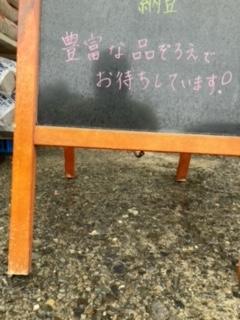 納豆
豊富な品ぞろえで
お待ちしています!